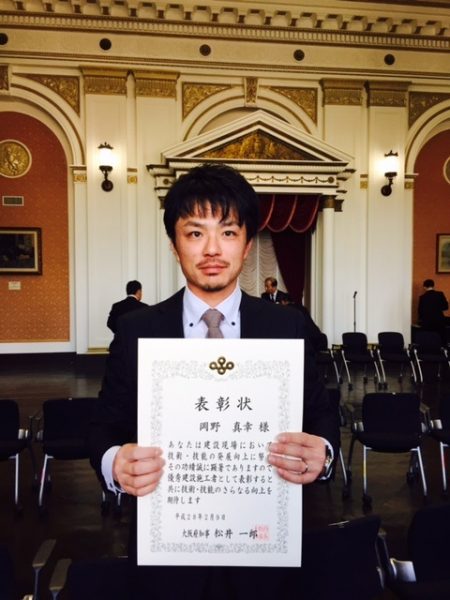 表彰状
岡野 真幸 様
あなたは建設現場において
技術・技能の発展向上に努
その功績誠に顕著でありますので
優秀建設施工者として表彰すると
共に技術・技能のさらなる向上を
期待します
平成28年2月9日
大阪府知事 松井 一郎